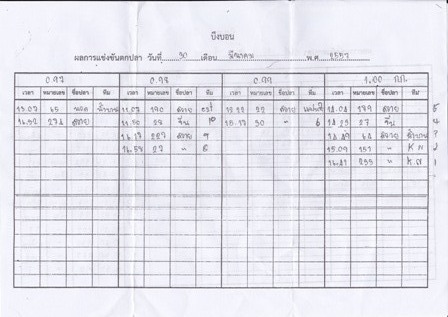 บึงบอน
ผลการแข่งขันตกปลา วันที่ 30 เดือน มีนาคม พ.ศ. 2557
0.97 0.98 0.99 1.00 กก.
เวลา หมายเลข ชื่อปลา ทีม เวลา หมายเลข ชื่อปลา ทีม เวลา หมายเลข ชื่อปลา ทีม เวลา หมายเลข ชื่อปลา ทีม
13.07 65 11.07 190 สวาย 22 สวาย 14.04 179 สวาย 5
16.52 274 สวาย 11.50 28 จีน 10 15.17 30 " 6 14.25 27 จีน 4
16.17 227 สวาย 9 14.49 64 สวาย 3
16.58 22 " 8 15.09 151 " K.N 2
16.41 255 " K.N 1